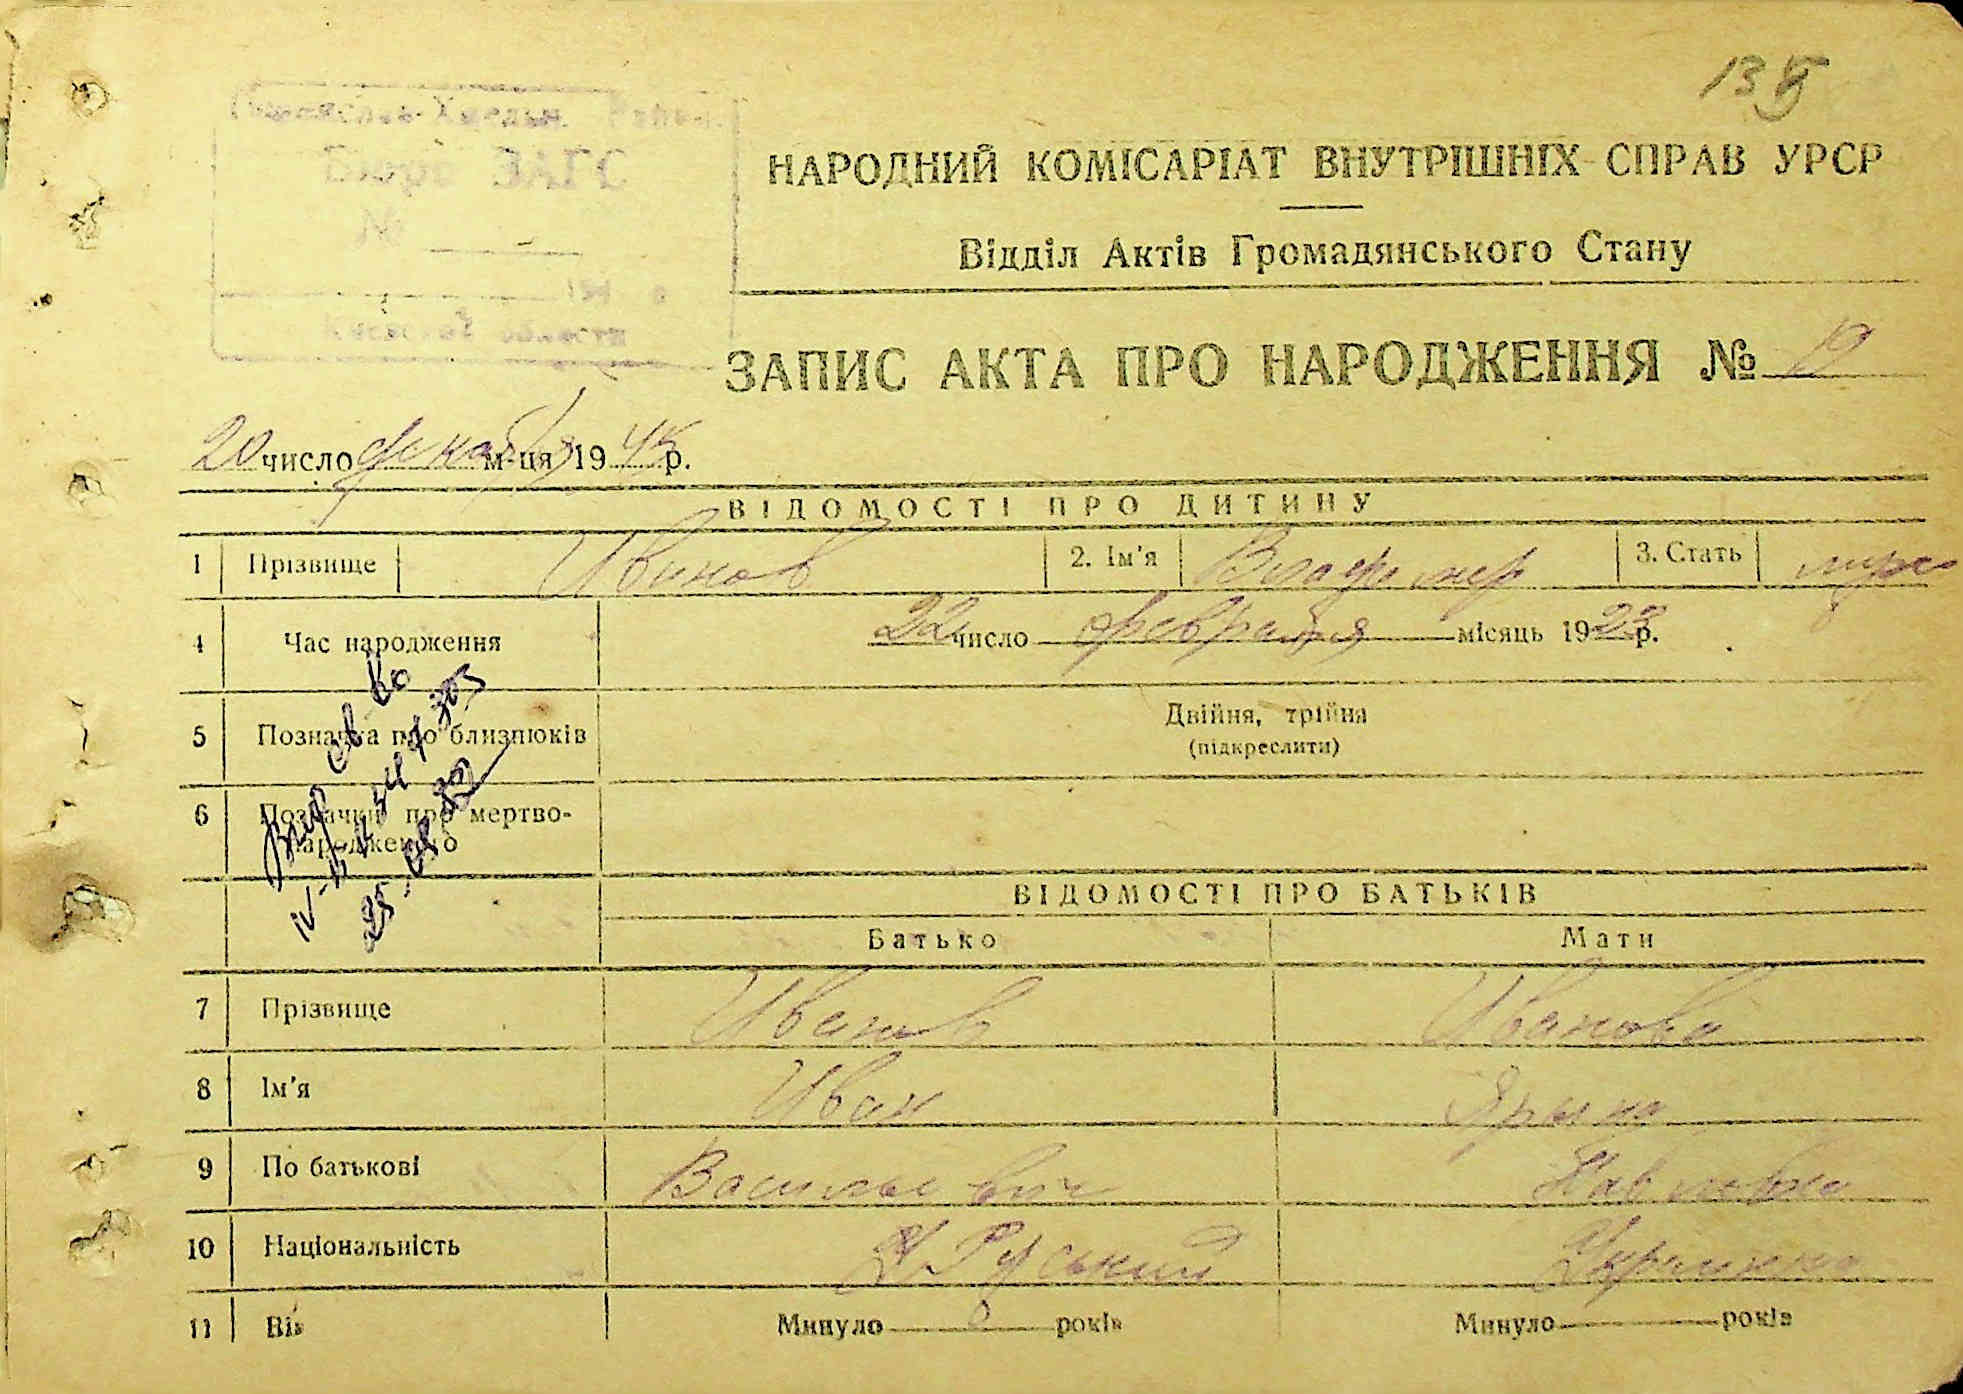 НАРОДНИЙ КОМІСАРІАТ ВНУТРІШНІХ СПРАВ УРСР
Відділ Актів Громадянського Стану
ЗАПИС АКТА ПРО НАРОДЖЕННЯ № 19
20 число декабря м-ця 1945 р.
ВІДОМОСТІ ПРО ДИТИНУ
1 Прізвище Иванов 2. Ім'я Владимер 3. Стать муж
4 Час народження 22 число февраля місяць 1923 р.
5 Позначка про близнюків Двійня, трійня
(підкреслити)
6 Позначки про мертво-
народженого
ВІДОМОСТІ ПРО БАТЬКІВ
Батько Мати
7 Прізвище Иванов Иванова
8 Ім'я Иван Ярына
9 По батькові Васильевич Павловна
10 Національність Руський Украинка
11 Вік Минуло років Минуло років